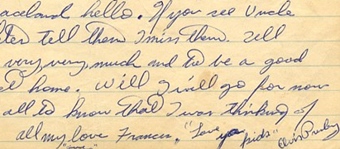 hello. If you see Uncle
tell them I miss them. Tell
very very much and to be a good
at home. Will I will go for now
all to know that I was thinking of
all my love Frances. "Love ya kids"